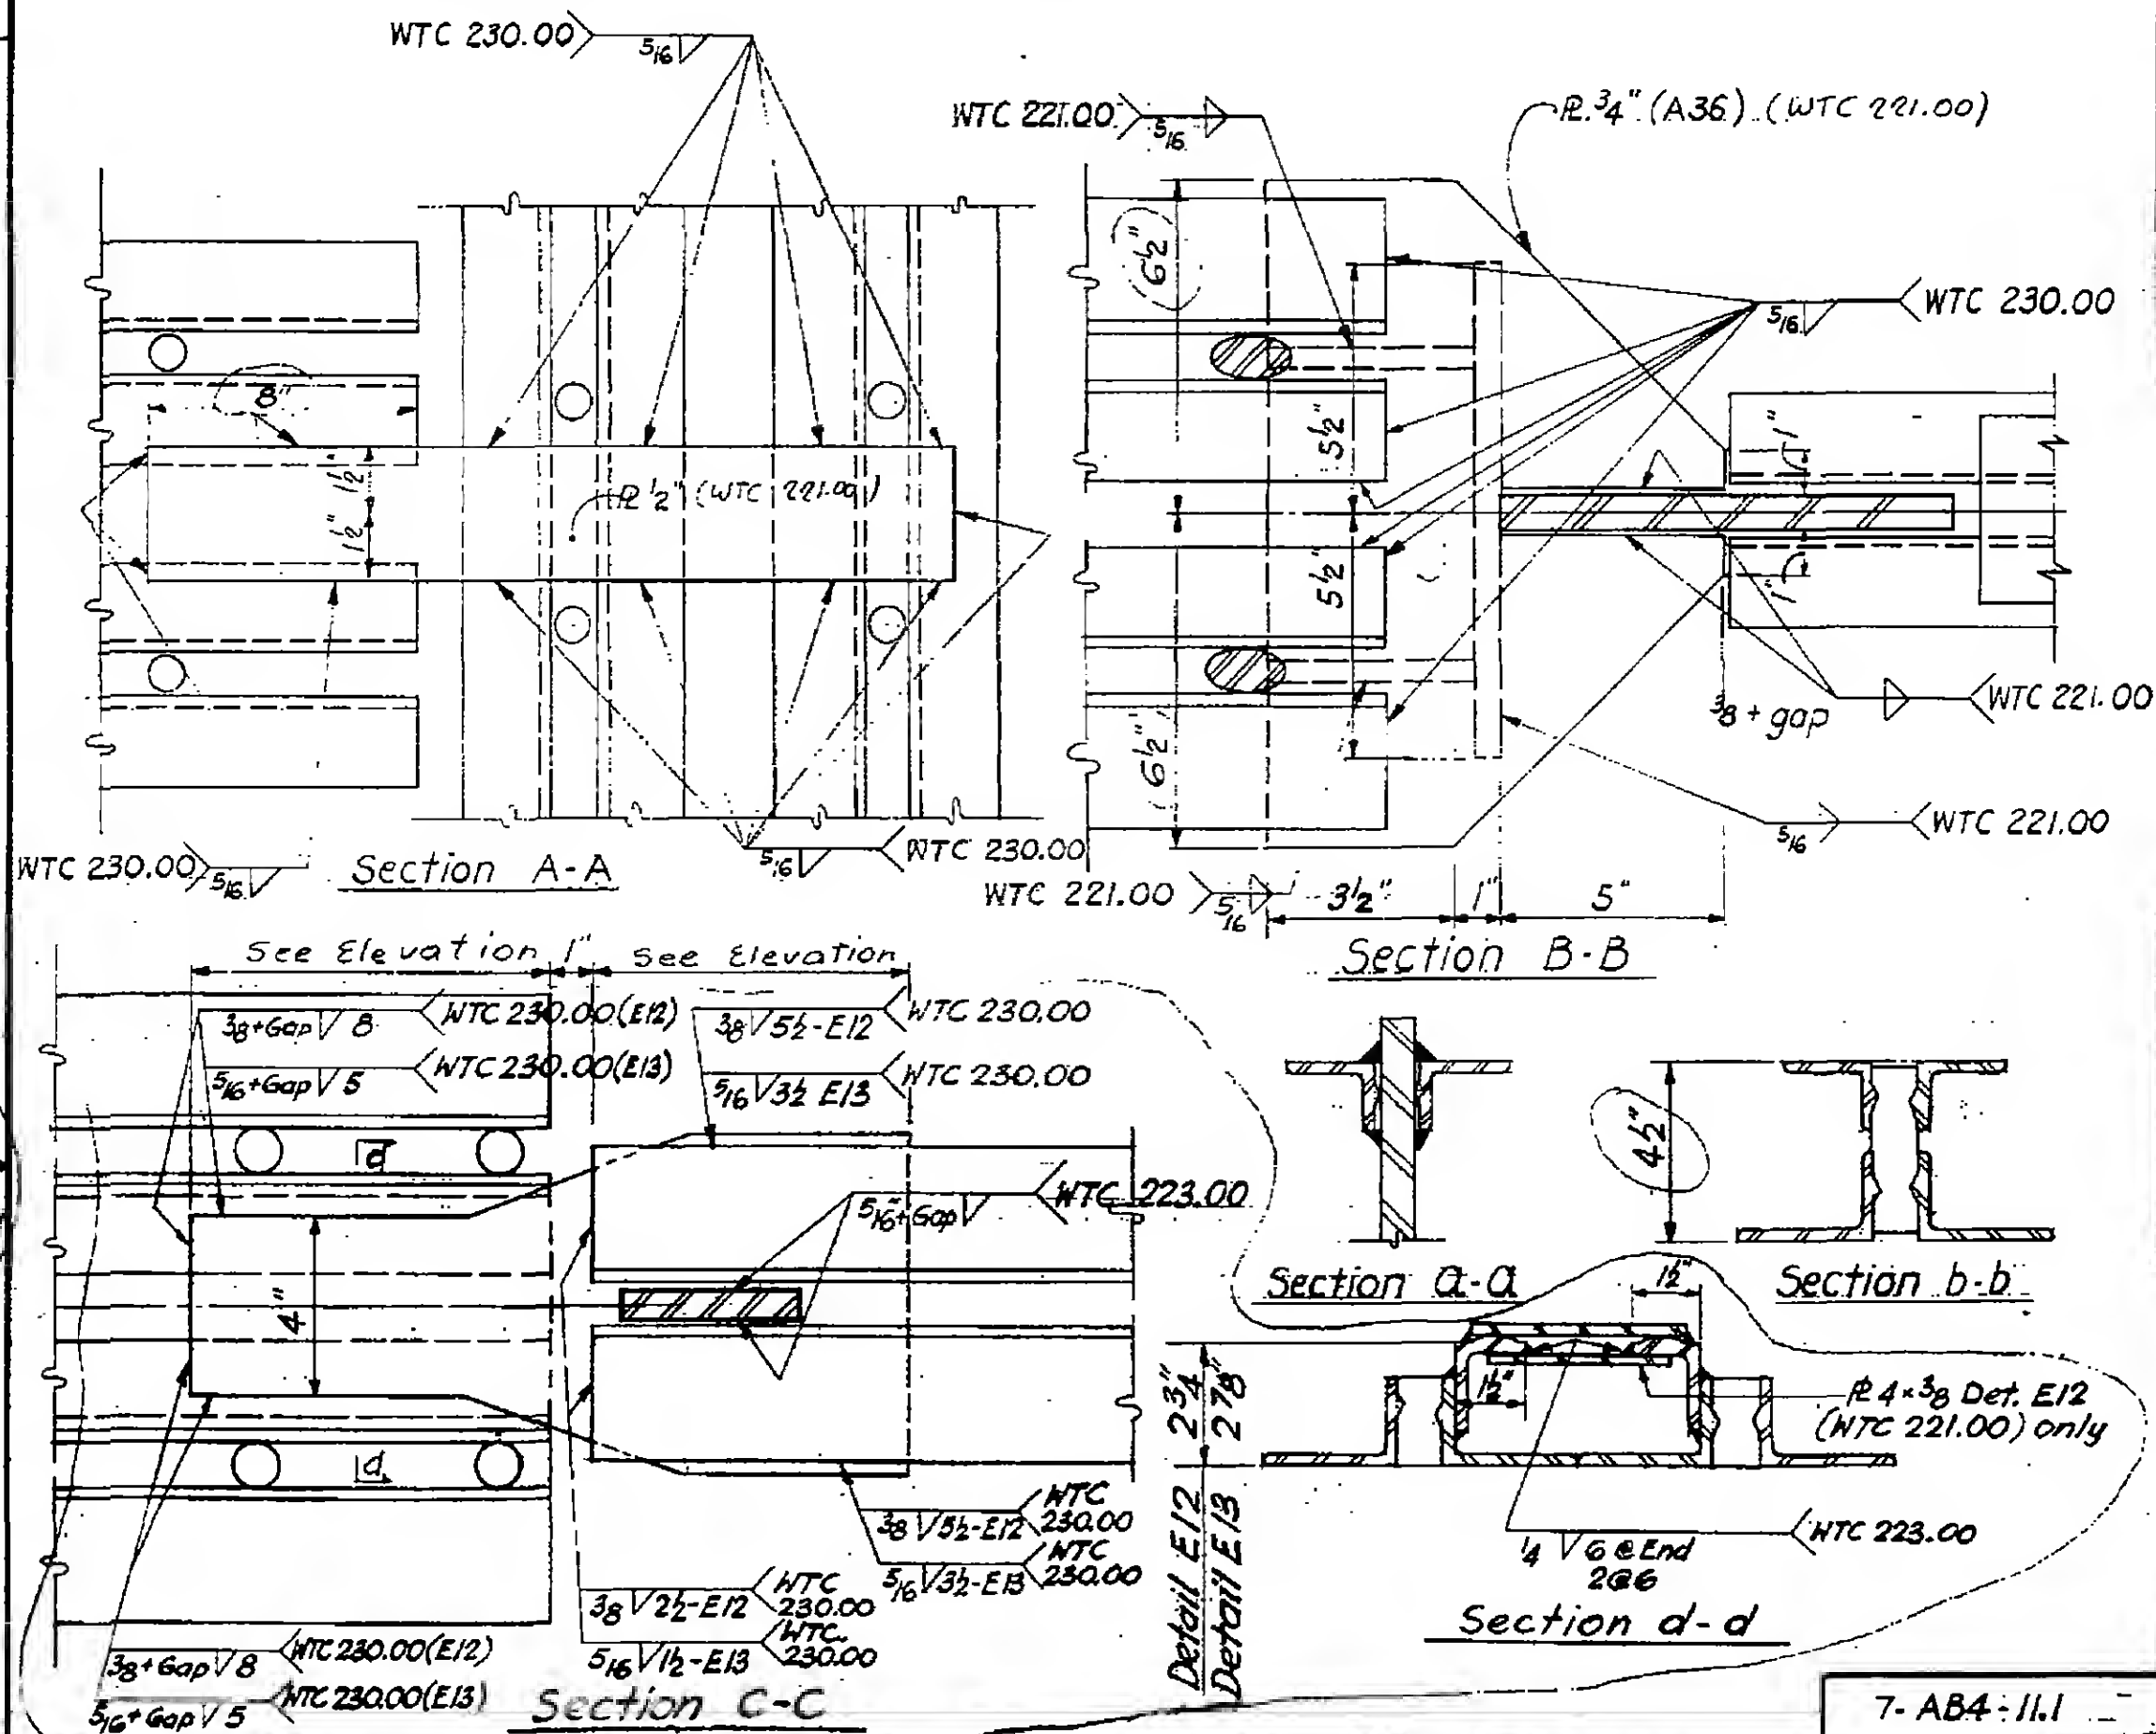 WTC 230.00
5/16
8"
1½"
1½"
PL ½" (WTC 221.00)
WTC 230.00
5/16
5/16
WTC 230.00
Section A-A
WTC 221.00
5/16
PL 3/4" (A36) (WTC 221.00)
6½"
5½"
5½"
6½"
5/16
WTC 230.00
1"
1"
3/8 + gap
WTC 221.00
5/16
WTC 221.00
WTC 221.00
5/16
3½"
1"
5"
Section B-B
See Elevation
1"
See Elevation
3/8+Gap 8
WTC 230.00 (E12)
5/16+Gap 5
WTC 230.00 (E13)
3/8 5½-E12
WTC 230.00
5/16 3½ E13
WTC 230.00
d
4"
d
5/16"+Gap
WTC 223.00
3/8 5½-E12
WTC
230.00
5/16 3½-E13
WTC
230.00
3/8 2½-E12
WTC
230.00
5/16 1½-E13
WTC.
230.00
3/8+Gap 8
WTC 230.00(E12)
5/16+Gap 5
WTC 230.00(E13)
Section C-C
Section a-a
4½"
Section b-b
1½"
1½"
2¾"
2⅞"
Detail E12
Detail E13
PL 4×3/8 Det. E12
(WTC 221.00) only
1/4 6 @ End
2@6
WTC 223.00
Section d-d
7-AB4-11.1